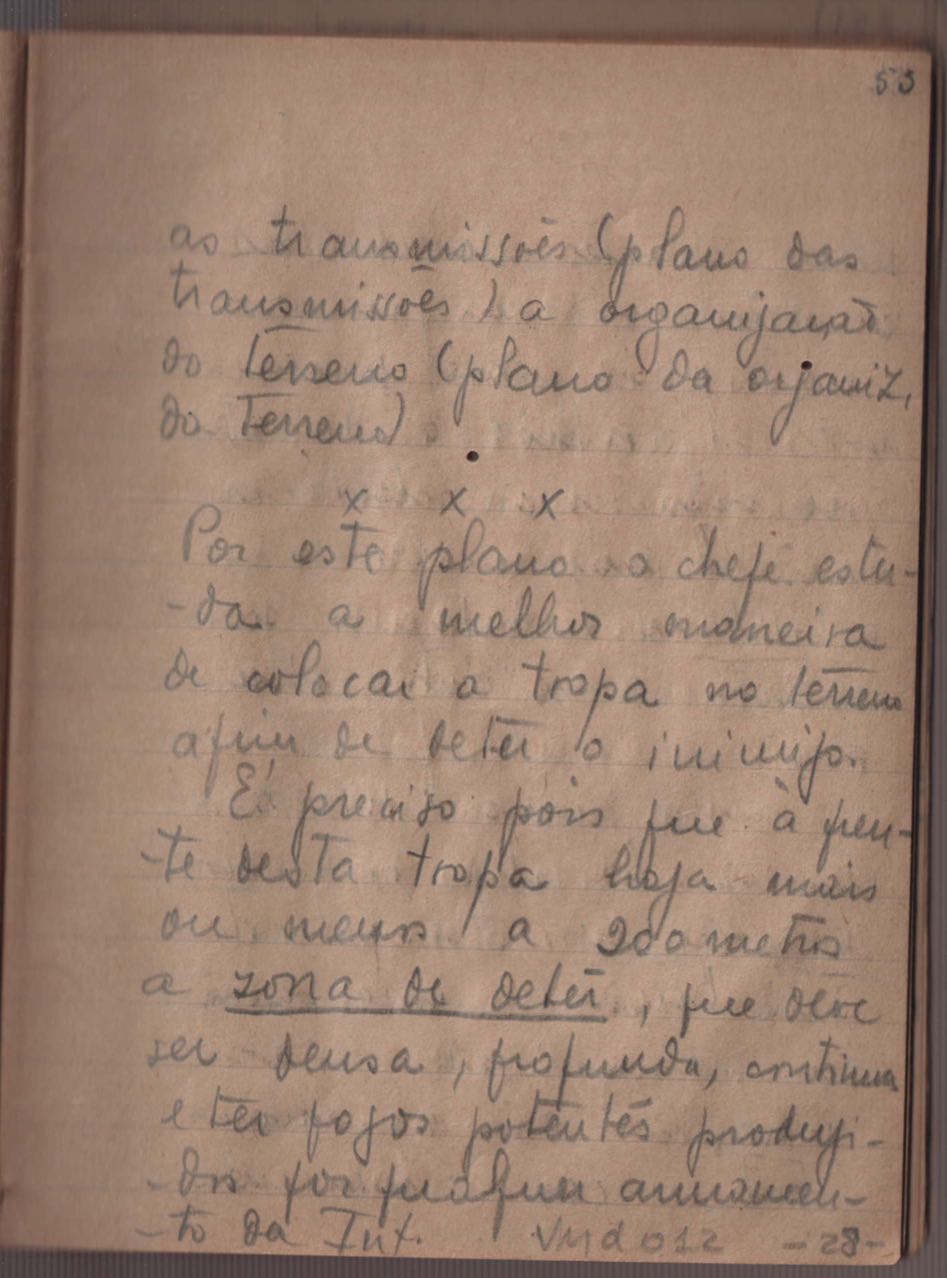 53
as transmissões (plano das
transmissões) a organização
do terreno (plano da organiz,
do terreno)
x x x
Por este plano o chefe estu-
-da a melhor maneira
de colocar a tropa no terreno
afim de deter o inimigo.
É preciso pois que à fren-
-te desta tropa haja mais
ou menos a 200 metros
a zona de deter, que deve
ser densa, profunda, continua
e ter fogos potentes produzi-
-dos por qualquer armamen-
-to da Inf. -28-